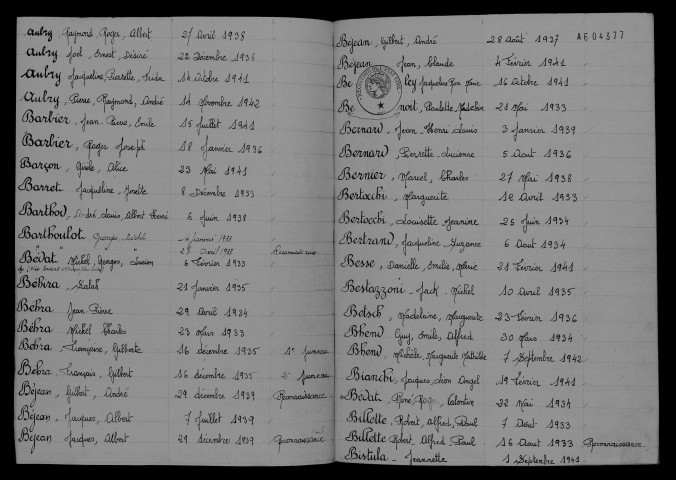 Aubry, Raymond, Roger, Albert 27 Avril 1938
Aubry Joel, Ernest, Désiré 22 Décembre 1938
Aubry Jacqueline, Pierrette, 14 Octobre 1941
Aubry, Pierre, Raymond, André 14 Novembre 1942
Barbier, Jean Pierre, Emile 15 Juillet 1941
Barbier, Roger Joseph 18 Janvier 1936
Barçon, Alice 23 Mai 1941
Barret Jacqueline, Ginette 8 Décembre 1933
Barthod, André, Louis, Albert Henri 6 Juin 1938
Barthoulot, Georges, André Janvier
" " Avril Reconnaissance
Bédat Michel, Georges, Lucien 6 Février 1933
Behra, Salah 21 Janvier 1935
Behra Jean Pierre 29 Avril 1934
Behra Michel Charles 23 Mars 1933
Behra, Françoise, Gilberte 16 décembre 1935 1er jumeau
Behra François, Gilbert 16 décembre 1935 2e jumeau
Béjean, Gilbert, André 29 décembre 1939 Reconnaissance
Béjean, Jacques, Albert 7 Juillet 1939
Béjean Jacques, Albert 29 décembre 1939 Reconnaissance
Béjean, Gilbert, André 28 Août 1937 AE04377
Béjean, Jean, Claude 4 Février 1941
Be ley Jacqueline Rose Marie 16 Octobre 1941
Be noit, Paulette, Madeleine 21 Mai 1933
Bernard, Jean Henri Louis 3 Janvier 1939
Bernard, Pierrette Lucienne 5 Aout 1936
Bernier, Marcel, Charles 27 Mai 1938
Bertocchi, Marguerite 12 Avril 1933
Bertocchi, Louisette Jeanine 25 Juin 1934
Bertrand, Jacqueline, Suzanne 6 Aout 1934
Besse, Danielle, Emilie, Marie 21 Février 1941
Bestazzoni, Jack, Michel 10 Avril 1935
Betsch, Madeleine, Marguerite 23 Février 1936
Bhend Guy, Emile, Alfred 30 Mars 1934
Bhend, Michèle, Marguerite Mathilde 7 Septembre 1942
Bianchi, Jacques, Léon Angel 19 Février 1941
Bédat, René, Roger, Valentin 22 Mai 1934
Billotte, Robert, Alfred, Paul 7 Aout 1933
Billotte Robert, Alfred Paul 16 Aout 1933 Reconnaissance
Bistula - Jeannette 1 Septembre 1941